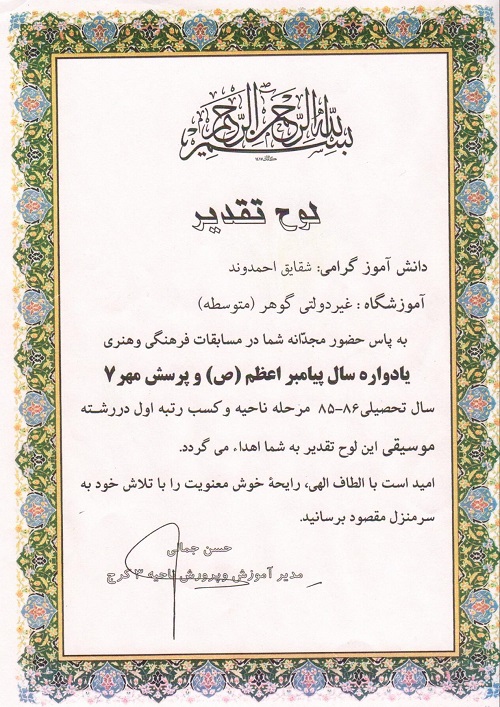 بسم الله الرحمن الرحیم
لوح تقدیر
دانش آموز گرامی: شقایق احمدوند
آموزشگاه : غیردولتی گوهر (متوسطه)
به پاس حضور مجدّانه شما در مسابقات فرهنگی وهنری
یادواره سال پیامبر اعظم (ص) و پرسش مهر ۷
سال تحصیلی ۸۶-۸۵ مرحله ناحیه وکسب رتبه اول دررشته
موسیقی این لوح تقدیر به شما اهداء می گردد.
امید است با الطاف الهی، رایحهٔ خوش معنویت را با تلاش خود به
سرمنزل مقصود برسانید.
حسن جمالی
مدیر آموزش وپرورش ناحیه ۳ کرج